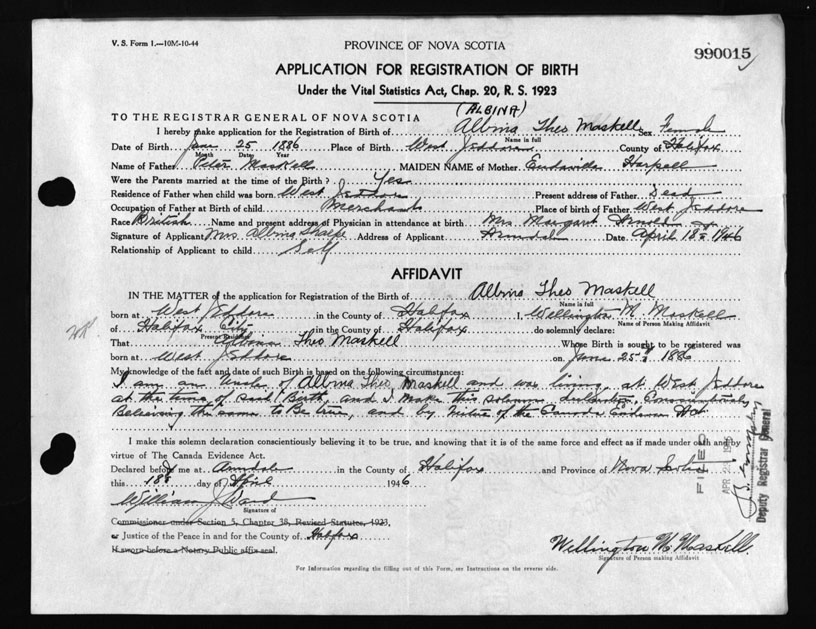 V. S. Form 1.—10M-10-44
PROVINCE OF NOVA SCOTIA
990015
APPLICATION FOR REGISTRATION OF BIRTH
Under the Vital Statistics Act, Chap. 20, R. S. 1923
(ALBINA)
TO THE REGISTRAR GENERAL OF NOVA SCOTIA
I hereby make application for the Registration of Birth of Albina Theo Maskell Sex Female
Name in full
Date of Birth 25 1886 Place of Birth West Jeddore County of Halifax
Month Date Year
Name of Father Peter Maskell MAIDEN NAME of Mother Haskell
Were the Parents married at the time of the Birth? Yes
Residence of Father when child was born West Jeddore Present address of Father Dead
Occupation of Father at Birth of child Merchant Place of birth of Father West Jeddore
Race British Name and present address of Physician in attendance at birth Mrs. Margaret
Signature of Applicant Mrs Albina Sharpe Address of Applicant Armdale Date April 18th 1946
Relationship of Applicant to child Self
AFFIDAVIT
IN THE MATTER of the application for Registration of Birth of Albina Theo Maskell
Name in full
born at West Jeddore in the County of Halifax I, Wellington M. Maskell
Name of Person Making Affidavit
of Halifax City in the County of Halifax do solemnly declare:
Present Residence
That Albina Theo Maskell Whose Birth is sought to be registered was
born at West Jeddore on 25th 1886
My knowledge of the fact and date of such Birth is based on the following circumstances:
I am an Uncle of Albina Theo Maskell and was living at West Jeddore
at the time of said Birth, and I make this solemn declaration, Conscientiously
Believing the same to Be true, and by Virtue of the Canada Evidence Act
I make this solemn declaration conscientiously believing it to be true, and knowing that it is of the same force and effect as if made under oath and by
virtue of The Canada Evidence Act.
Declared before me at Armdale in the County of Halifax and Province of Nova Scotia
this 18th day of April 1946
William J Ward
Signature of
Commissioner under Section 5, Chapter 38, Revised Statutes, 1923,
or Justice of the Peace in and for the County of Halifax
If sworn before a Notary Public affix seal.
Wellington M. Maskell.
Signature of Person making Affidavit
For Information regarding the filling out of this Form, see Instructions on the reverse side.
FILED
APR
Deputy Registrar General